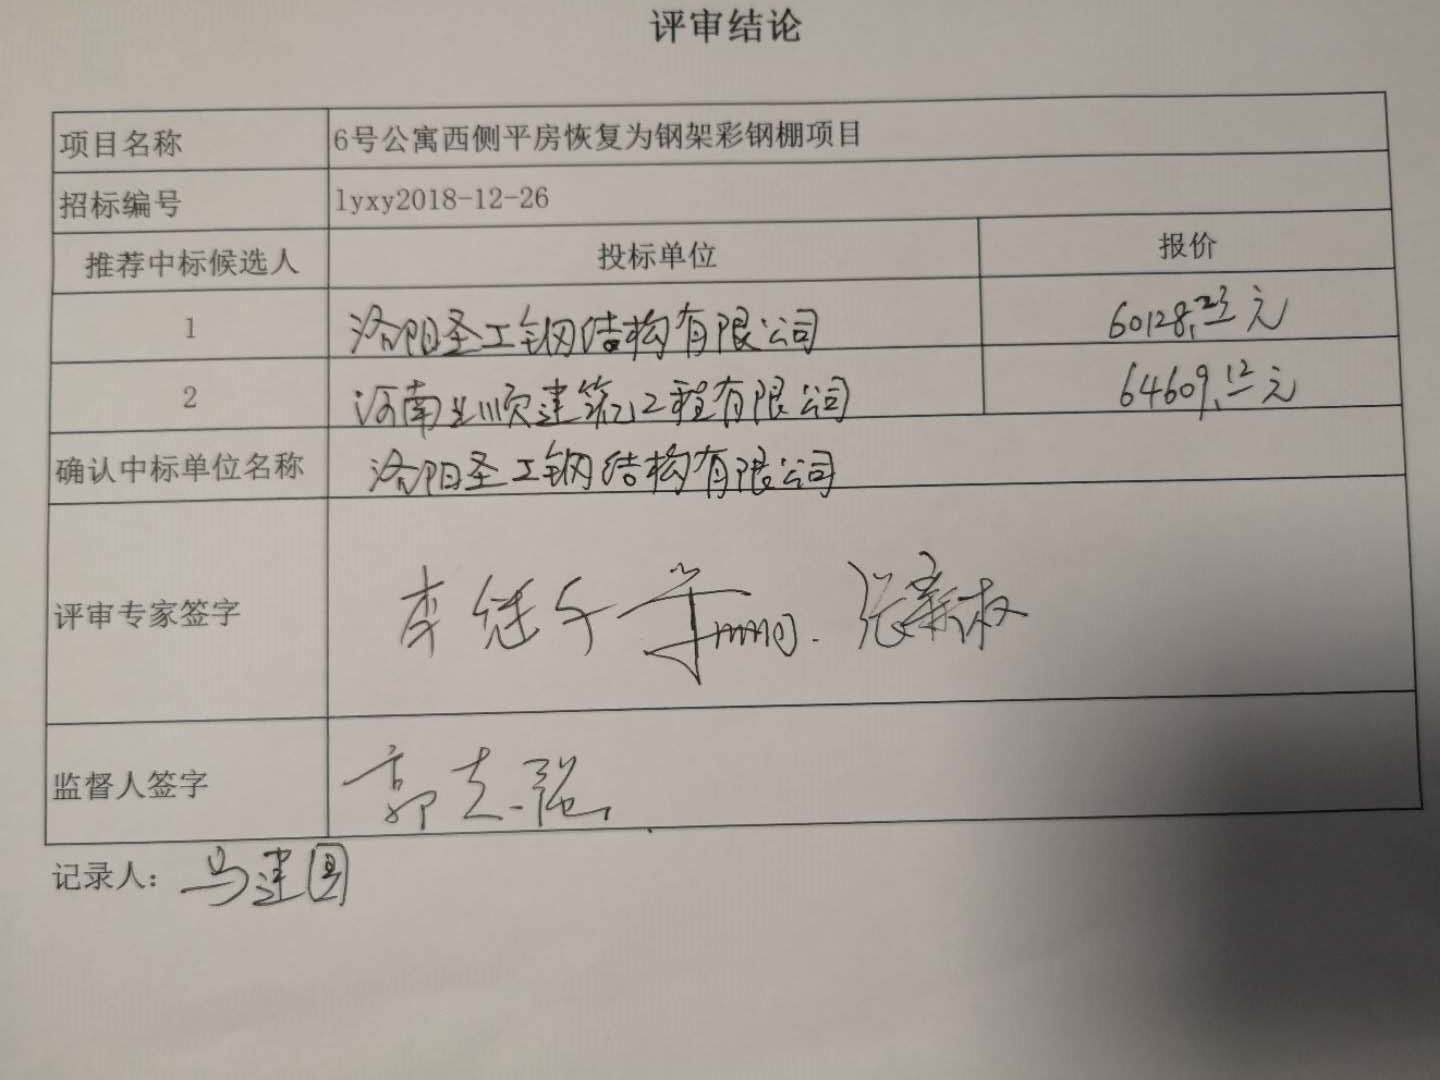 评审结论
项目名称 6号公寓西侧平房恢复为钢架彩钢棚项目
招标编号 lyxy2018-12-26
推荐中标候选人 投标单位 报价
1 洛阳圣工钢结构有限公司 60128.23元
2 河南业顺建筑工程有限公司 64609.12元
确认中标单位名称 洛阳圣工钢结构有限公司
评审专家签字 李继午
监督人签字 郭志强
记录人：马建国